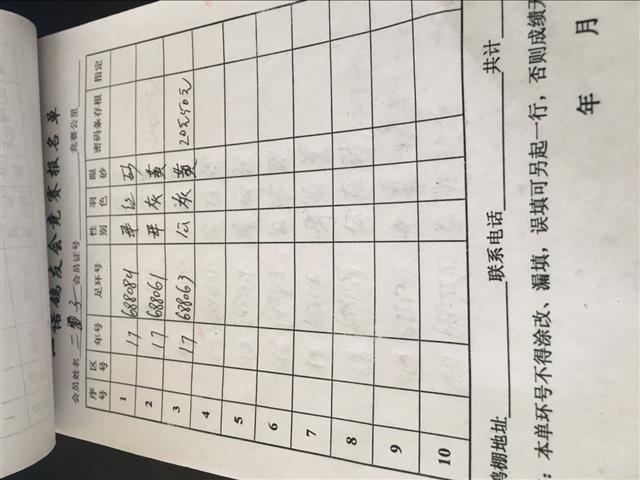 诺鸽友会竞赛报名单
会员姓名 二雷子 会员证号 竞赛公里
序号 区号 年号 足环号 性别 羽色 眼砂 密码条存根 指定
1 17 688084 红 砂
2 17 688061 灰 黄
3 17 688063 公 灰 黄 20元50元
4
5
6
7
8
9
10
鸽棚地址 联系电话 共计
：本单环号不得涂改、漏填，误填可另起一行，否则成绩无
年 月